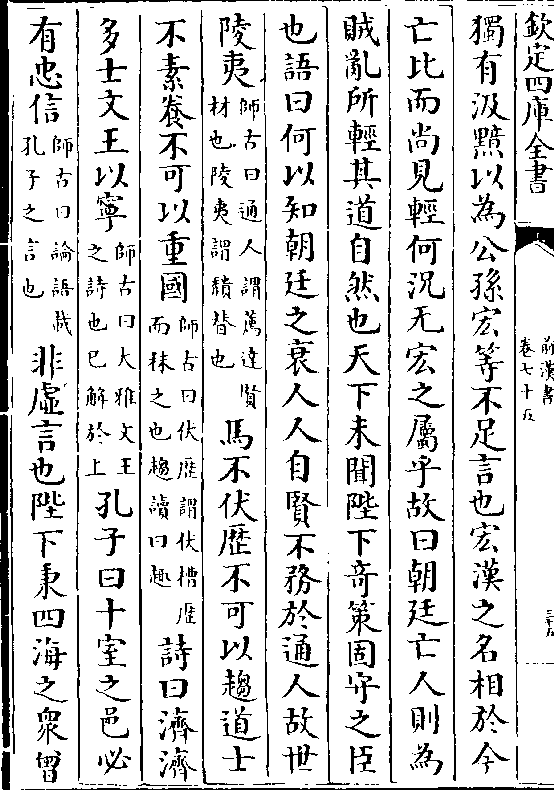 欽定四庫全書
前漢書
卷七十五
獨有汲黯以為公孫宏等不足言也宏漢之名相於今
亡比而尚見輕何況无宏之屬乎故曰朝廷亡人則為
賊亂所輕其道自然也天下未聞陛下奇策固守之臣
也語曰何以知朝廷之衰人人自賢不務於通人故世
陵夷師古曰通人謂薦達賢材也陵夷謂頽替也馬不伏歴不可以趨道士
不素養不可以重國師古曰伏歴謂伏槽歴而秣之也趨讀曰趣詩曰濟濟
多士文王以寧師古曰大雅文王之詩也已解於上孔子曰十室之邑必
有忠信師古曰論語載孔子之言也非虛言也陛下秉四海之衆曾